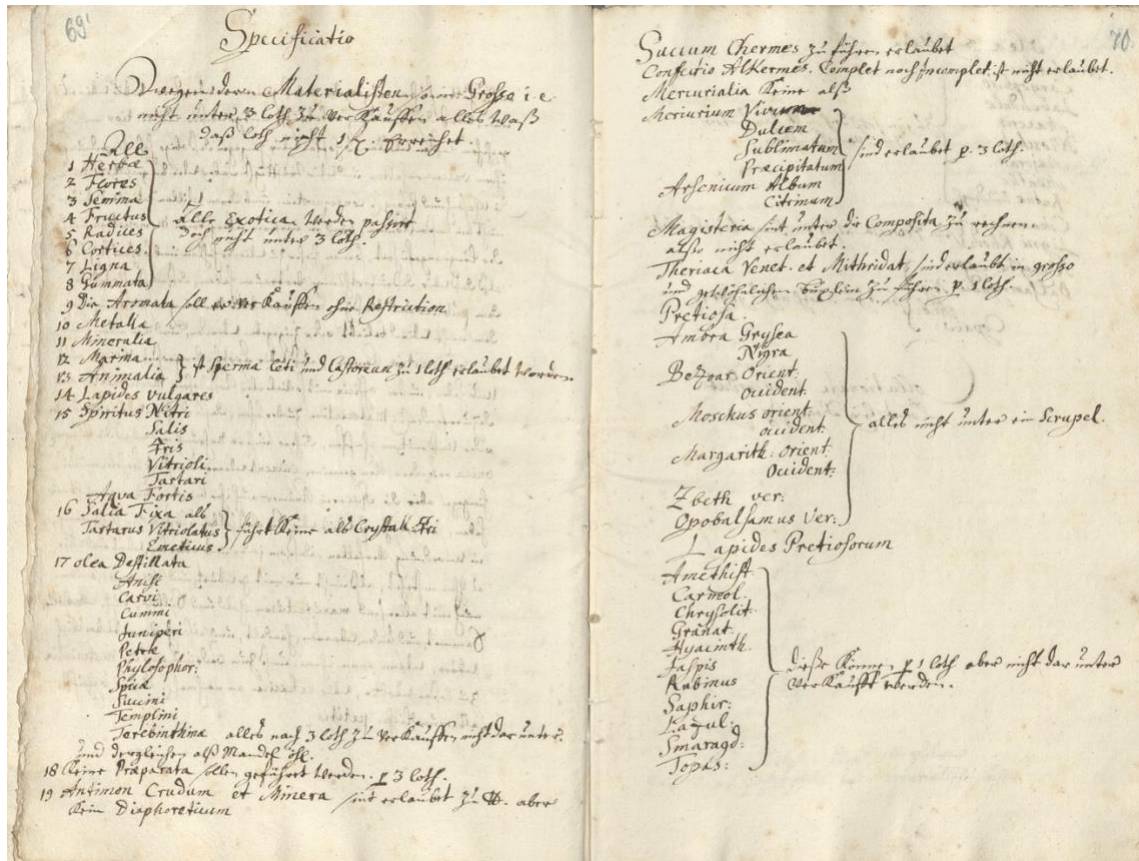 69'
Specificatio
Wegen denen Materialisten in Grosso i. e.
nicht unter 3 loth zu verkauffen alles waß
daß loth nicht 1 erreichet.
Alle
1 Herbæ
2 Flores
3 Semina
4 Fructus
5 Radices
6 Cortices
7 Ligna
8 Gummata
Alle Exotica werden passirt
doch nicht unter 3 loth.
9 Die Aromata soll er verkauffen ohne Restriction
10 Metalla
11 Mineralia
12 Marina
13 Animalia
ist Sperma Ceti und Castoreum zu 1 loth erlaubet worden
14 Lapides vulgares
15 Spiritus Nitri
Salis
Vitrioli
Tartari
Aqva Fortis
16 Salia Fixa alß
Tartarus Vitriolatus
Emeticus
führt Keine alß Crystalli
17 olea Destillata
Anisi
Carvi
Cummi
Juniperi
Petræ
Phylosophor:
Spicæ
Succini
Templini
Terebinthinæ alles nach 3 loth zu verkauffen nicht darunter.
und dergleichen alß Mandel öhl.
18 Keine Præparata sollen geführt werden. p 3 loth.
19 Antimon Crudum et Minera sint erlaubet zu ℔. aber
kein Diaphoreticum
70.
Succum Chermes zu führen erlaubet
Confectio Alkermes. Complet noch Incomplet. ist nicht erlaubet.
Mercurialia Keine alß
Mercurium Vivum
Dulcem
Sublimatum
Præcipitatum
Arsenicum Album
Citrinum
sind erlaubet p. 3 loth.
Magisteria sint unter die Composita zu rechnen
also nicht erlaubet.
Theriaca Venet. et Mithridat, sind erlaubt in grosso
und gewöhnlichen Büchslein zu führen p. 1 loth.
Pretiosa.
Ambra Grysea
Nigra
Bezoar Orient:
occident.
Moschus orient:
occident:
Margarith: Orient:
Occident:
Zbeth ver:
Opobalsamus Ver:
alles nicht unter ein Scrupel.
Lapides Pretiosorum
Amethist
Carneol.
Chrysolit.
Granat.
Hyacinth.
Jaspis
Rubinus
Saphir:
Lazul:
Smaragd:
Topas:
diese können p 1 loth aber nicht darunter
verkaufft werden.